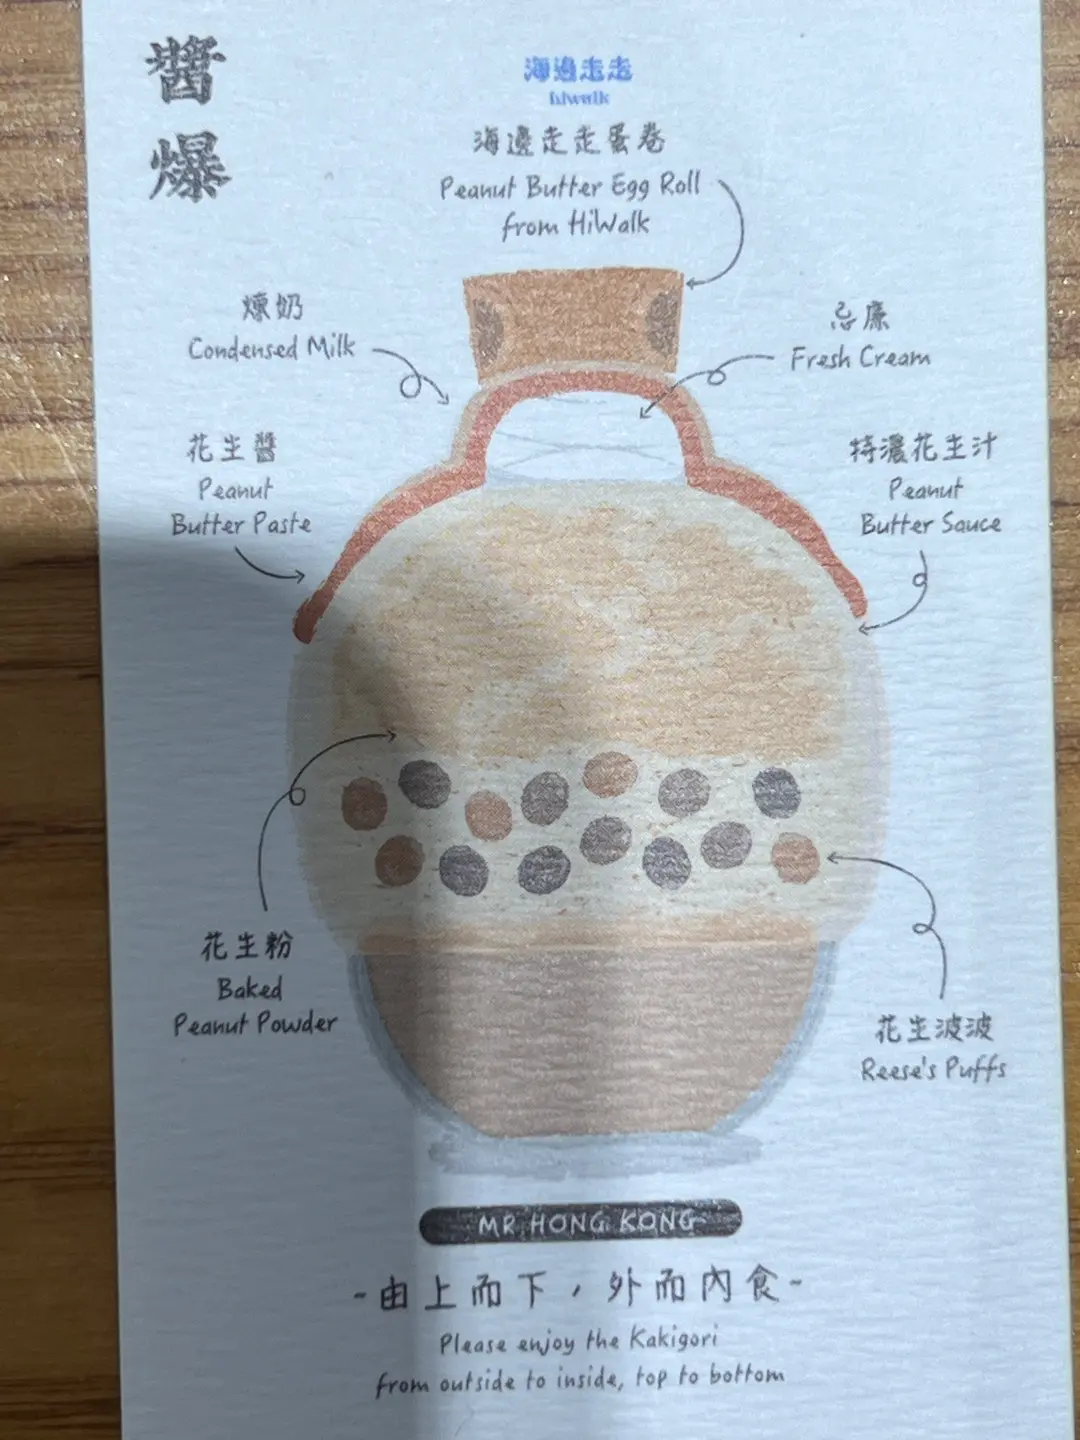 醬
爆
海邊走走
hiwalk
海邊走走蛋卷
Peanut Butter Egg Roll
from HiWalk
煉奶
Condensed Milk
忌廉
Fresh Cream
花生醬
Peanut
Butter Paste
特濃花生汁
Peanut
Butter Sauce
花生粉
Baked
Peanut Powder
花生波波
Reese's Puffs
MR HONG KONG
-由上而下，外而內食-
Please enjoy the Kakigori
from outside to inside, top to bottom